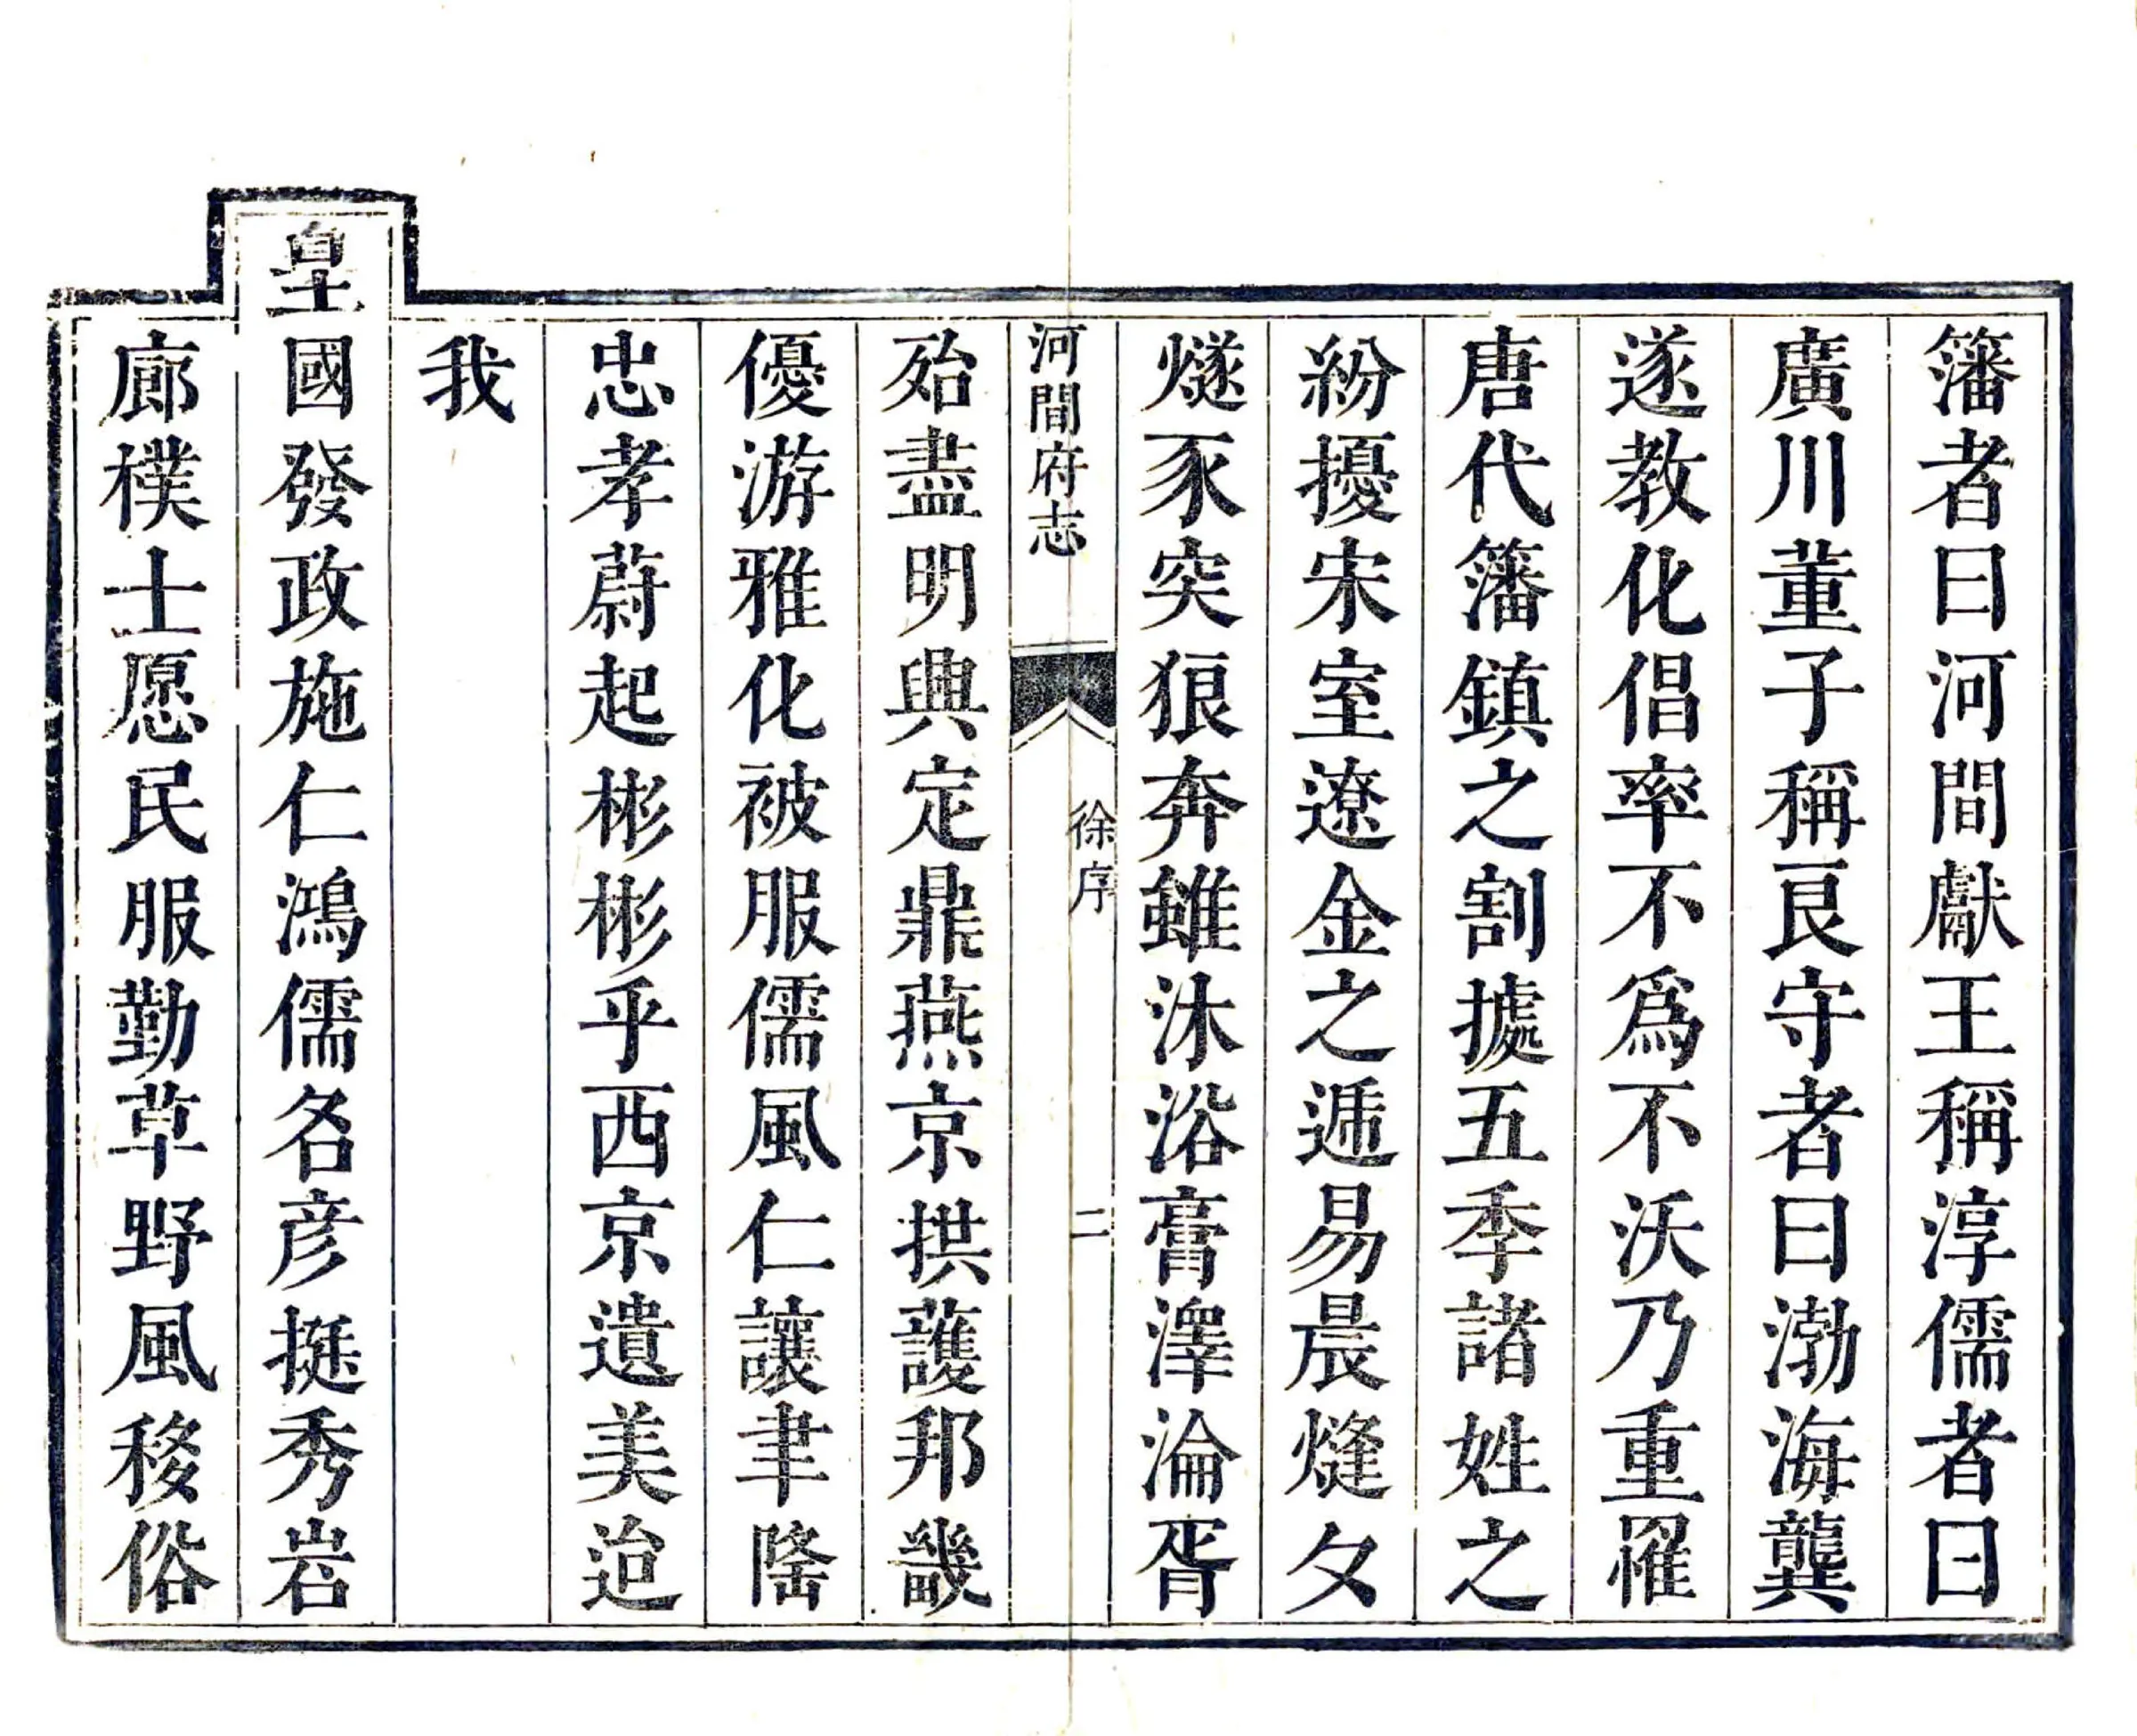 籓者曰河間獻王稱淳儒者曰
廣川董子稱良守者曰渤海龔
遂教化倡率不爲不沃乃重罹
唐代籓鎮之割據五季諸姓之
紛擾宋室遼金之遞易晨熢夕
燧豕突狼奔雖沐浴膏澤淪胥
河間府志
徐序
二
殆盡明興定鼎燕京拱護邦畿
優游雅化被服儒風仁讓聿隆
忠孝蔚起彬彬乎西京遺美迨
我
皇國發政施仁鴻儒名彦挺秀岩
廊樸士愿民服勤草野風移俗